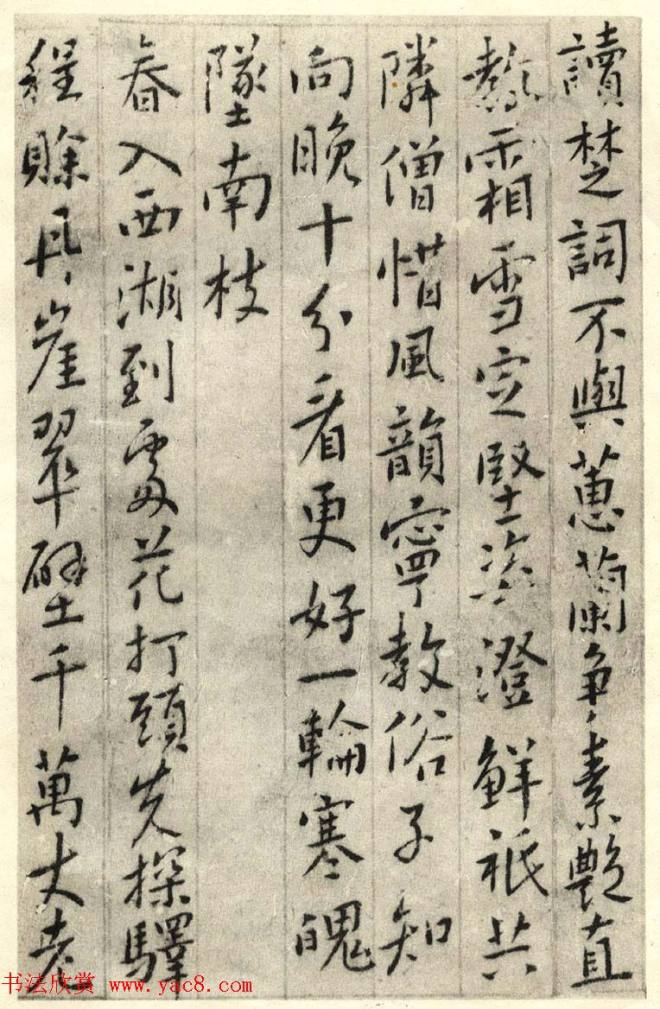 讀楚詞不與蕙蘭爭素艷直
教霜雪定堅姿澄鮮祇共
隣僧惜風韻寧教俗子知
向晚十分看更好一輪寒魄
墜南枝
春入西湖到處花打頭先探驛
程賖丹崖翠壁千萬丈老
书法欣赏 www.yac8.com